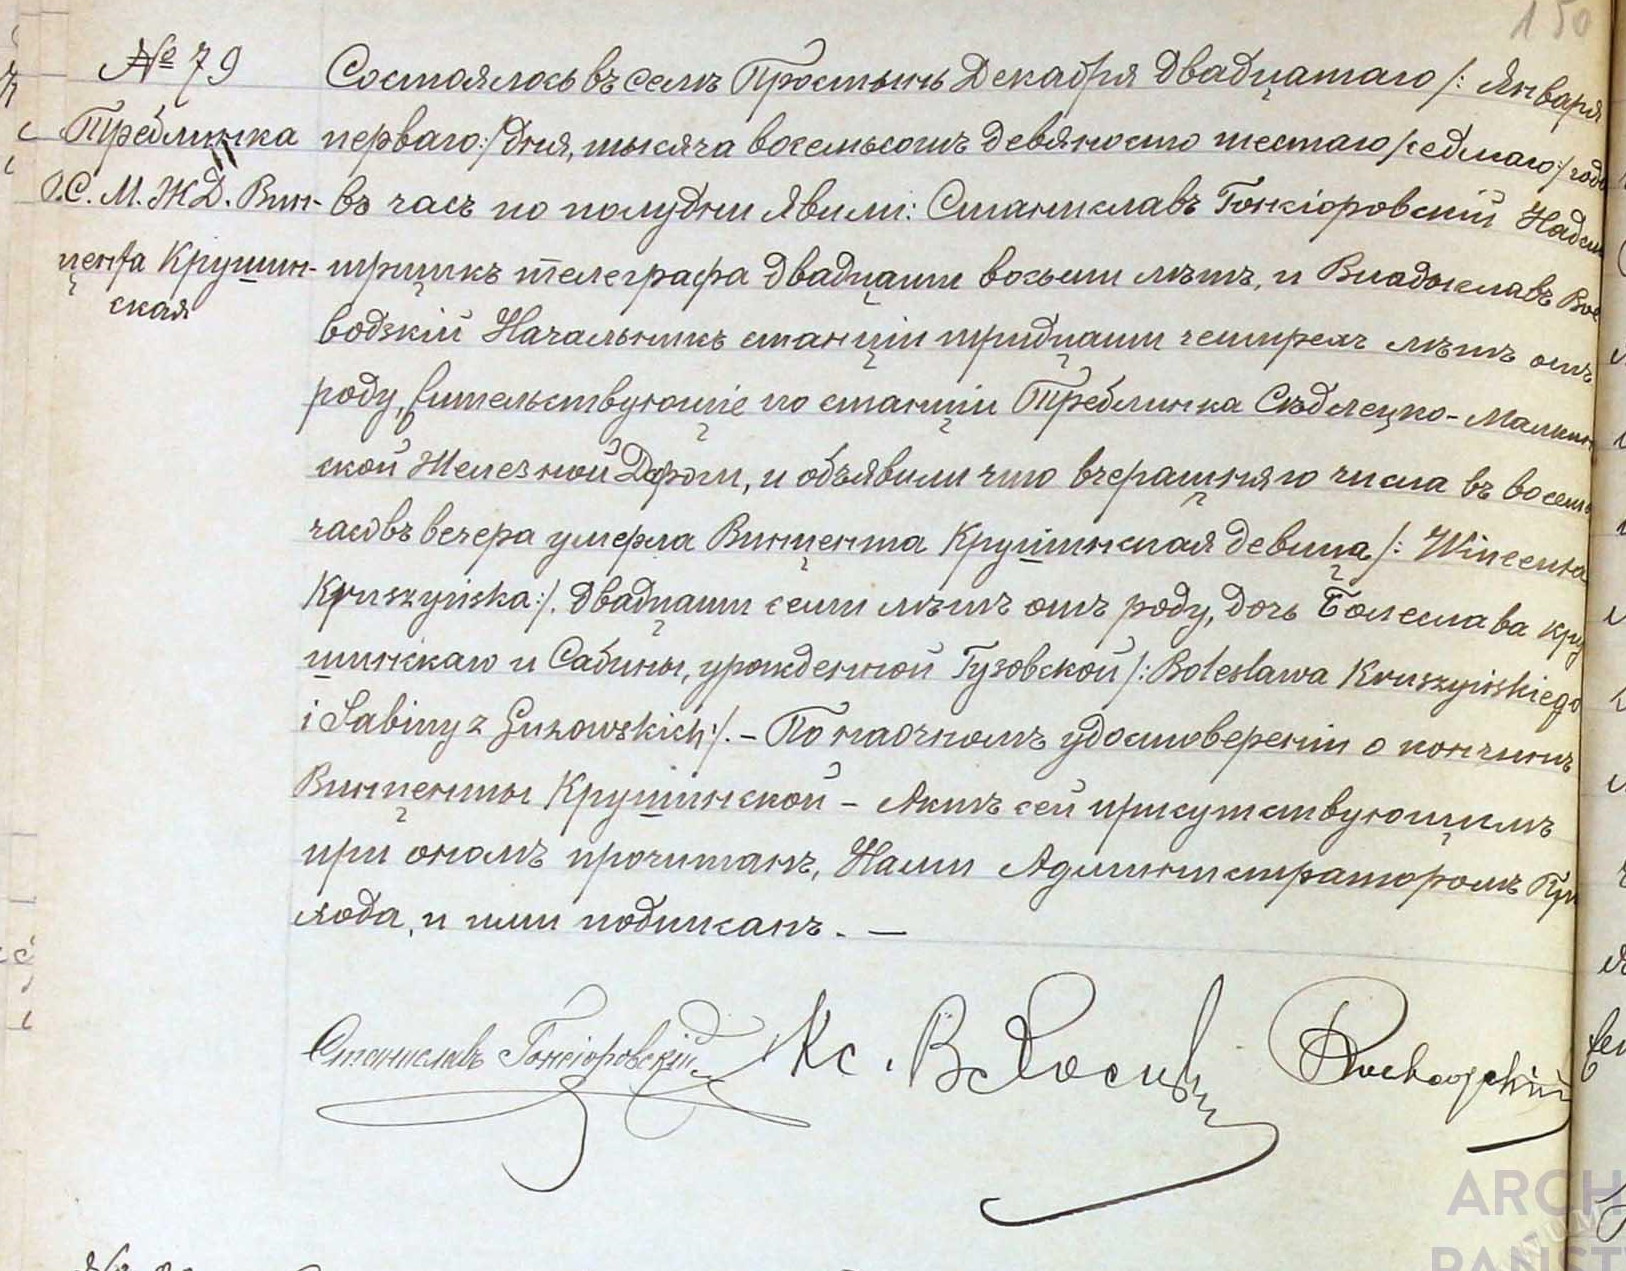 150
№ 79
Треблинка
С. М. Ж.Д. Вин-
цента Крушин-
ская
Состоялось въ селѣ Простынь Декабря двадцатаго /: Января
перваго:/ дня, тысяча восемьсотъ девяносто шестаго /седмаго:/ года
въ часъ по полудни Явили: Станиславъ Гонсіоровскій Надсмо
трщикъ телеграфа двадцати восьми лѣтъ, и Владыславъ Вое
водзкій Начальникъ станціи тридцати четырехъ лѣтъ отъ
роду, жительствующіе по станціи Треблинка Сѣдлецко-Малкин
ской Железной Дороги, и объявили что вчерашняго числа въ восемь
часовъ вечера умерла Винцента Крушинская девица /: Wincenta
Kruszyńska:/. двадцати семи лѣтъ отъ роду, дочь Болеслава Кру
шинскаго и Сабины, урожденной Гузовской /: Bolesława Kruszyńskiego
i Sabiny z Guzowskich:/. – По наочномъ удостоверенiи о кончинѣ
Винценты Крушинской – Актъ сей присутствующимъ
при ономъ прочитанъ, Нами Администраторомъ При
хода, и ими подписанъ. –
Станиславъ Гонсіоровскій Кс.
ARCH
PAŃST